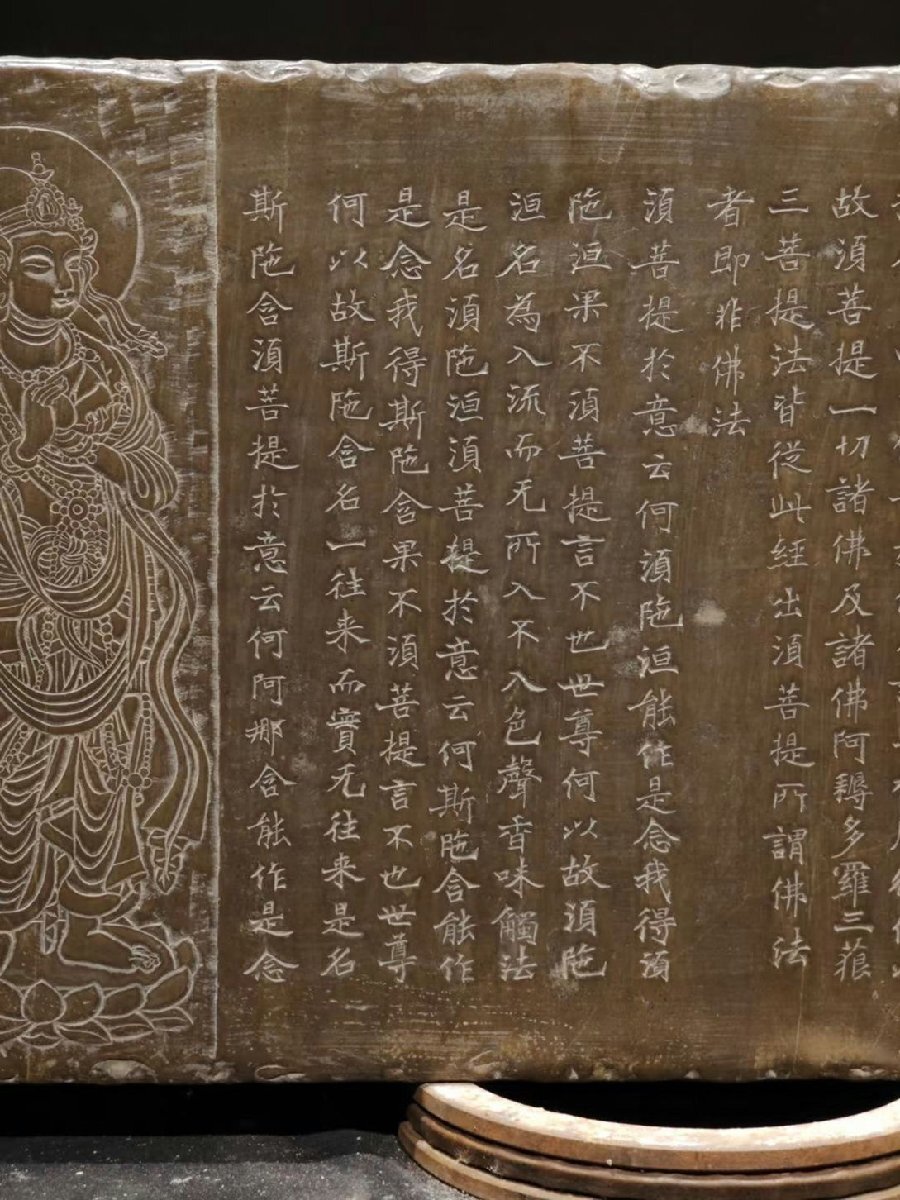 故湏菩提一切諸佛及諸佛阿耨多羅三藐
三菩提法皆從此經出湏菩提所謂佛法
者即非佛法
湏菩提於意云何湏陁洹能作是念我得湏
陁洹果不湏菩提言不也世尊何以故湏陁
洹名為入流而无所入不入色聲香味觸法
是名湏陁洹湏菩提於意云何斯陁含能作
是念我得斯陁含果不湏菩提言不也世尊
何以故斯陁含名一往来而實无往来是名
斯陁含湏菩提於意云何阿那含能作是念